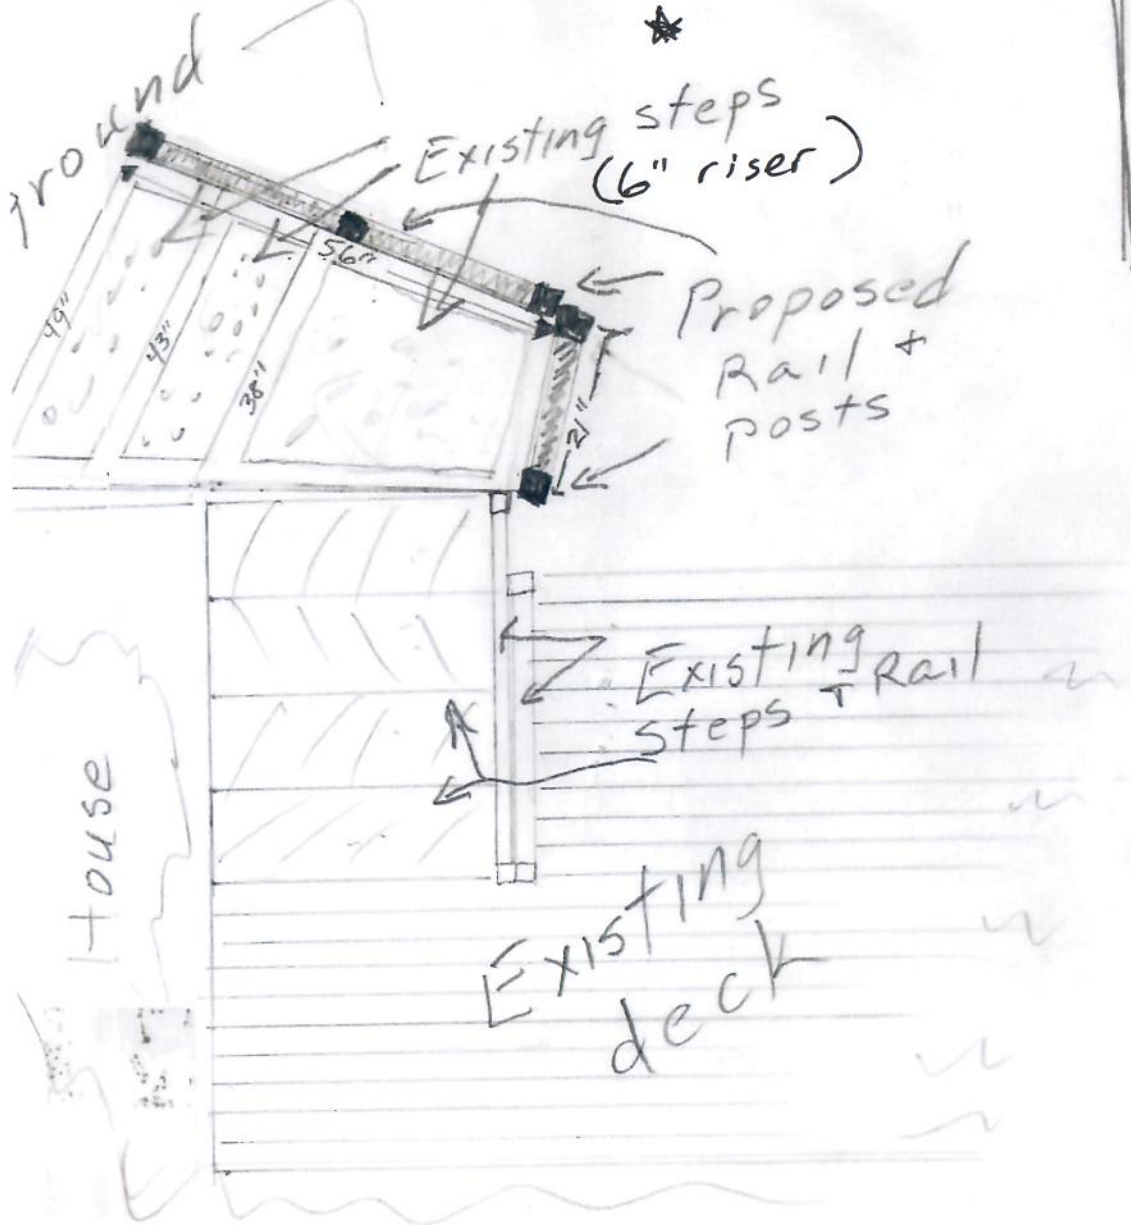 ground
Existing steps
(6" riser)
56"
49"
43"
38"
21"
Proposed
Rail +
posts
Existing
steps + Rail
House
Existing
deck